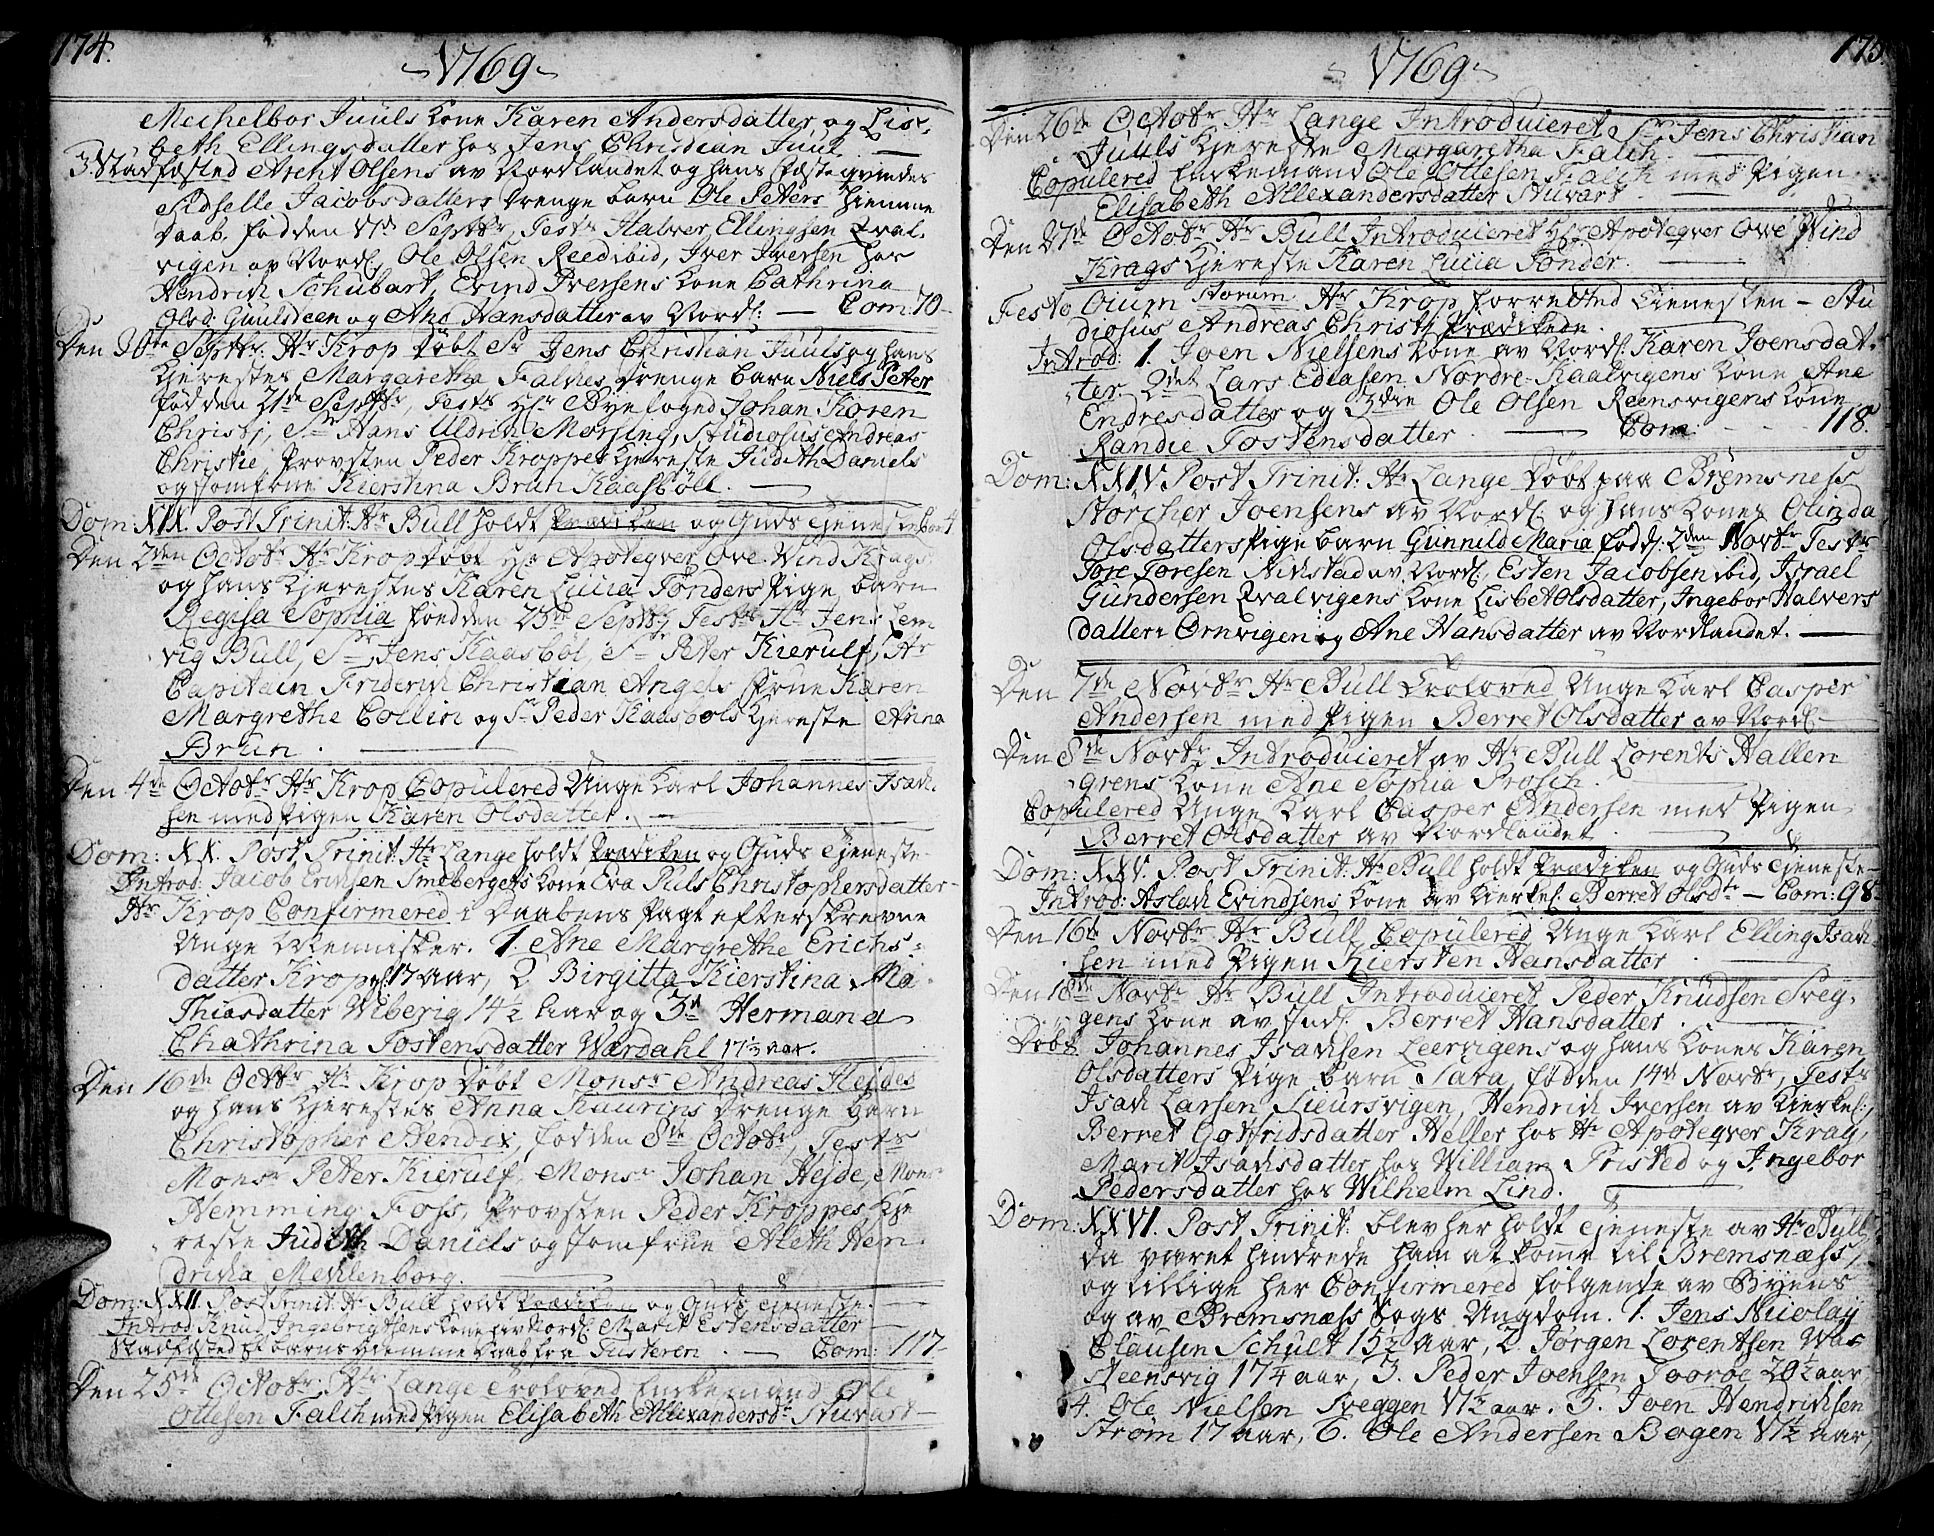 174.
~1769~
Mechelbor Juuls Kone Karen Andersdatter, og Lis¬
beth Ellingsdatter hos Jens Christian Juul. —
3. Stadfæsted Arent Olsens av Nordlandet og hans Fæste qvindes
Sidselle Jacobsdatters Drenge barn Ole Peters hiemme
daab, fød den 17de Septbr, Testr Halvor Ellingsen Qval-
vigen av Nordl, Ole Olsen Reed ibid, Iver Iversen hos
Hendrich Schubart, Evind Iversens Kone Cathrina
Olsd: Guulseen og Ane Hansdatter av Nordl: — Com: 70
Den 30te Septbr: Hr Krop døbt Sr Jens Christian Juuls og hans
Kjerestes Margaretha Falches Drenge barn Niels Peter
fød den 21de Septbr, Testr Hr Byefoged Johan Koren
Christj, Sr Hans Uldrich Morsing, Studiosus Andreas
Christie, Provsten Peder Kroppes Kjereste Judith Daniels
og Jomfrue Kierstina Brun Kaasböll. —
Dom: XIX. Post Trinit: Hr Bull holdt Prædiken og Guds Tjeneste
Den 2den Octobr Hr Krop døbt Hr Apoteqver Ove Wind Krags
og hans Kjerestes Karen Lucia Tönders Pige barn
Regisa Sophia föed den 25de Septbr Testr Hr Jens Lem
vig Bull, Sr Jens Kaasböl, Sr Peter Kierulf, Hr
Capitain Friderich Christian Angels Frue Karen
Margrethe Collin og Sr Peder Kaasböls Kjereste Anna
Brun. —
Den 4de Octobr Hr Krop Copulered Unge Karl Johannes Isach
sen med Pigen Karen Olsdatter. —
Dom: XX. Post Trinit: Hr Lange holdt Prædiken og Guds Tjeneste
Introd: Jacob Erichsen Smebergets Kone Eva Puls Christophersdatter
Hr Krop Confirmered i Daabens Pagt efterskrevne
Unge Mennisker. 1. Ane Margrethe Erichs-
datter Krop 17 aar, 2 Birgitta Kierstina Ma-
thiasdatter Wiberig 14½ aar og 3d Hermana
Chathrina Tostensdatter Wardahl 17½ aar.
Den 16de Octbr Hr Krop døbt Monsr Andreas Heides
og hans Kjerestes Anna Kaurins Drenge barn
Christopher Bendix, fød den 8de Octobr, Tests
Monsr Peter Kierulf, Monsr Johan Hejde, Monsr
Hemming Foss, Provsten Peder Kroppes Kje
reste Judith Daniels og Jomfrue Aleth Hen
dricha Mechlenborg. —
Dom: XXII. Post Trinit: Hr Bull holdt Prædiken og Guds Tjeneste. —
Introd: Knud Ingebrigtsens Kone her Nordl: Marit Estensdatter —
Stadfæsted et barns hiemme daab fra Tusteren. — Com: 117
Den 25de Octobr Hr Lange Troloved Enckemand Ole
Ottesen Falch med Pigen Elisabeth Allexandersdr Stuvart —
175.
~1769~
Den 26de Octobr Hr Lange Introduieret Sr Jens Christian
Juuls Kjereste Margaretha Falch. —
Copulered Enckemand Ole Ottesen Falch med Pigen
Elisabeth Allexandersdatter Stuvart. —
Den 27de Octobr Hr Bull Introduieret Hr Apoteqver Ove Wind
Krags Kjereste Karen Lucia Tönder. —
Festo Oium Storum Hr Krop forrettd Tienesten — Stu
diosus Andreas Christi Prædikede.
Introd: 1. Joen Nielsens Kone av Nordl: Karen Joensdat-
ter, 2det Lars Ediasen Nordre-Kaalvigens Kone Ane
Endresdatter og 3die Ole Olsen Reensvigens Kone
Randie Tostensdatter. — Com: 118.
Dom: XXIV. Post Trinit: Hr Lange døbt paa Bremsness
Störcher Joensens av Nordl: og hans Kones Olinda
Olsdatters Pige barn Gunnild Maria fød: 2den Novbr, Testr
Tore Toresen Nichstad av Nordl, Esten Jacobsen ibid, Israel
Gundersen Qvalvigens Kone Lisbet Olsdatter, Ingebor Halvers
datter i Ornvigen og Ane Hansdatter av Nordlandet. —
Den 7de Novbr Hr Bull Troloved Unge Karl Casper
Andersen med Pigen Berret Olsdatter av Nordl. —
Den 8de Novbr Introduieret av Hr Bull Lorents Hallen
grens Kone Ane Sophia Prosch. —
Copulered Unge Karl Casper Andersen med Pigen
Berret Olsdatter av Nordlandet. —
Dom: XXV. Post Trinit: Hr Bull holdt Prædiken og Guds Tjeneste —
Introd: Aslach Evindsens Kone av Kierkel: Berret Olsdtr — Com: 98
Den 16de Novbr Hr Bull Copulered Unge Karl Elling Isach-
sen med Pigen Kiersten Hansdatter. —
Den 18de Novbr Hr Bull Introduieret Peder Knudsen Sveg-
gens Kone av Indl. Berret Hansdatter. —
Döbt Johannes Isachsen Leervigens og hans Kones Karen
Olsdatters Pige barn Sara, fød den 14de Novbr, Testr
Isach Larsen Sieursvigen, Hendrich Iversen av Kierkel:,
Berret Gotfridsdatter Heller hos Hr Apoteqver Krag,
Marit Isachsdatter hos William Pristed og Ingebor
Pedersdatter hos Wilhelm Lind. —
Dom: XXVI. Post Trinit: blev her holdt Tjeneste av Hr Bull
da været hindrede ham at kome til Bremsnæss,
og tillige her Confirmered fölgende av Byens
og av Bremsnæss Sogs Ungdom. 1. Jens Nicolay
Clausen Schult 15½ aar, 2. Jörgen Lorentsen Was
Steensvig 17¼ aar, 3. Peder Joensen Tooröe 20½ aar,
4. Ole Nielsen Sveggen 17½ aar. 5. Joen Hendrichsen
Ström 17 aar, 6. Ole Andersen Bogen 17½ aar,